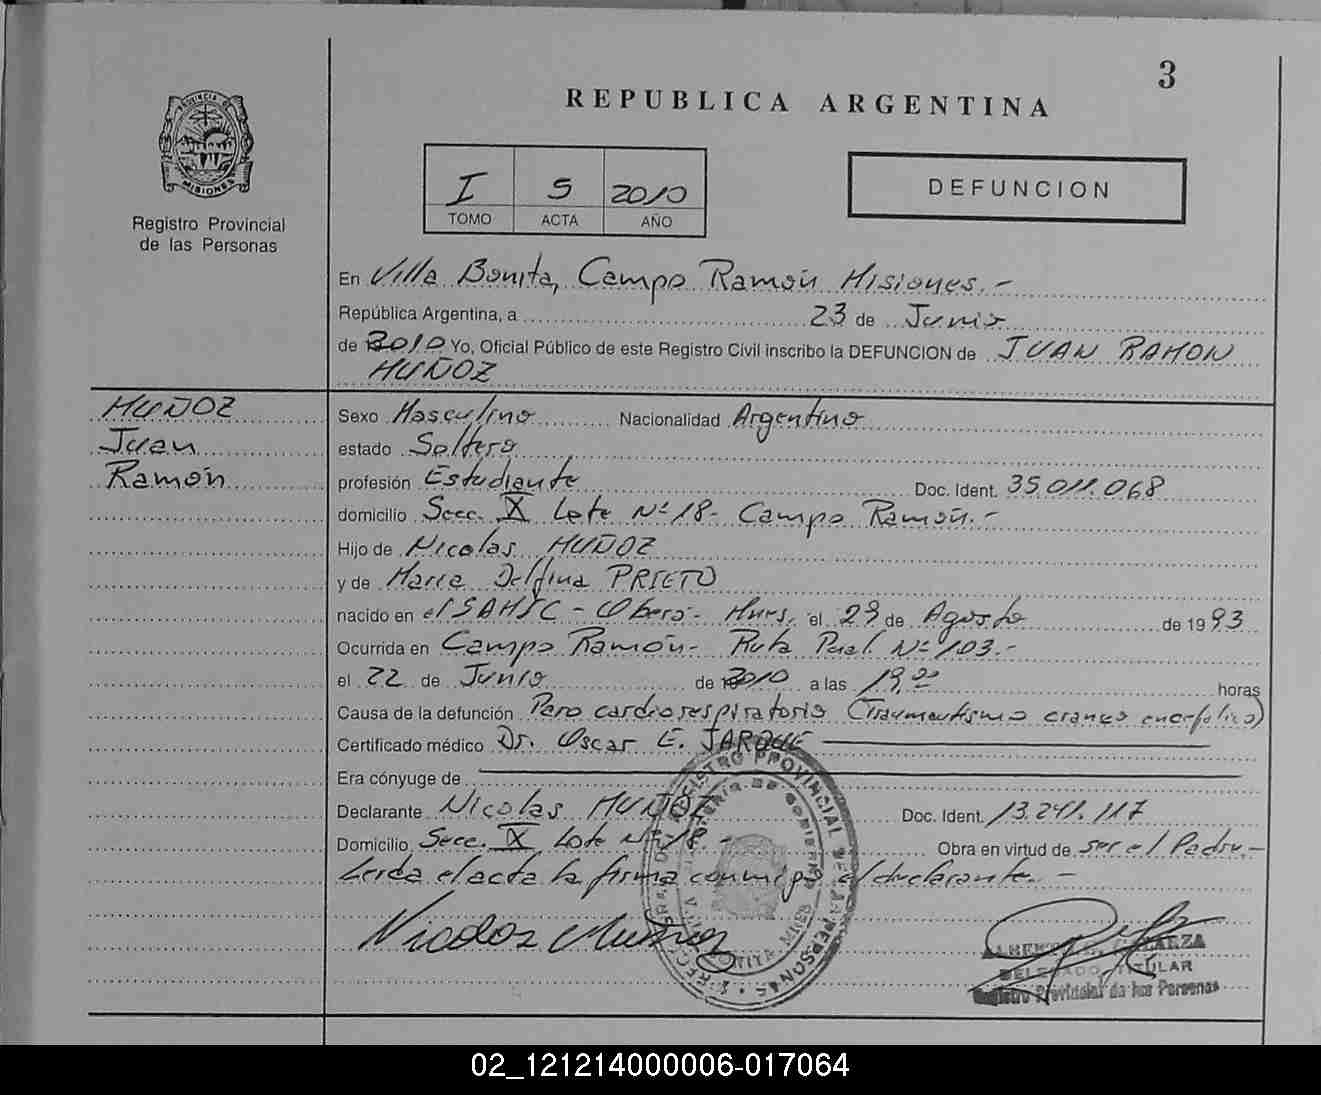 3
REPUBLICA ARGENTINA
PROVINCIA DE
MISIONES
Registro Provincial
de las Personas
I 5 2010
TOMO ACTA AÑO
DEFUNCION
En Villa Bonita, Campo Ramón Misiones.-
República Argentina, a 23 de Junio
de 2010 Yo, Oficial Público de este Registro Civil inscribo la DEFUNCION de JUAN RAMON
MUÑOZ
MUÑOZ
Juan
Ramón
Sexo Masculino Nacionalidad Argentino
estado Soltero
profesión Estudiante Doc. Ident. 35.011.068
domicilio Secc. X Lote Nº 18- Campo Ramón.-
Hijo de Nicolas MUÑOZ
y de Maria Delfina PRIETO
nacido en el SAMIC - Oberá- Mnes, el 29 de Agosto de 1993
Ocurrida en Campo Ramón- Ruta Pcial. Nº 103.-
el 22 de Junio de 2010 a las 19,00 horas
Causa de la defunción Paro cardiorespiratorio (Traumatismo craneo encefalico)
Certificado médico Dr. Oscar E. JARQUE
Era cónyuge de
Declarante Nicolas MUÑOZ Doc. Ident. 13.241.117
Domicilio Secc. X Lote Nº 18.- Obra en virtud de ser el Padre.-
Leida el acta la firma conmigo el declarante.-
Nicolas Muñoz
REGISTRO PROVINCIAL DE LAS PERSONAS
DELEGADO TITULAR
Registro Provincial de las Personas
02_121214000006-017064